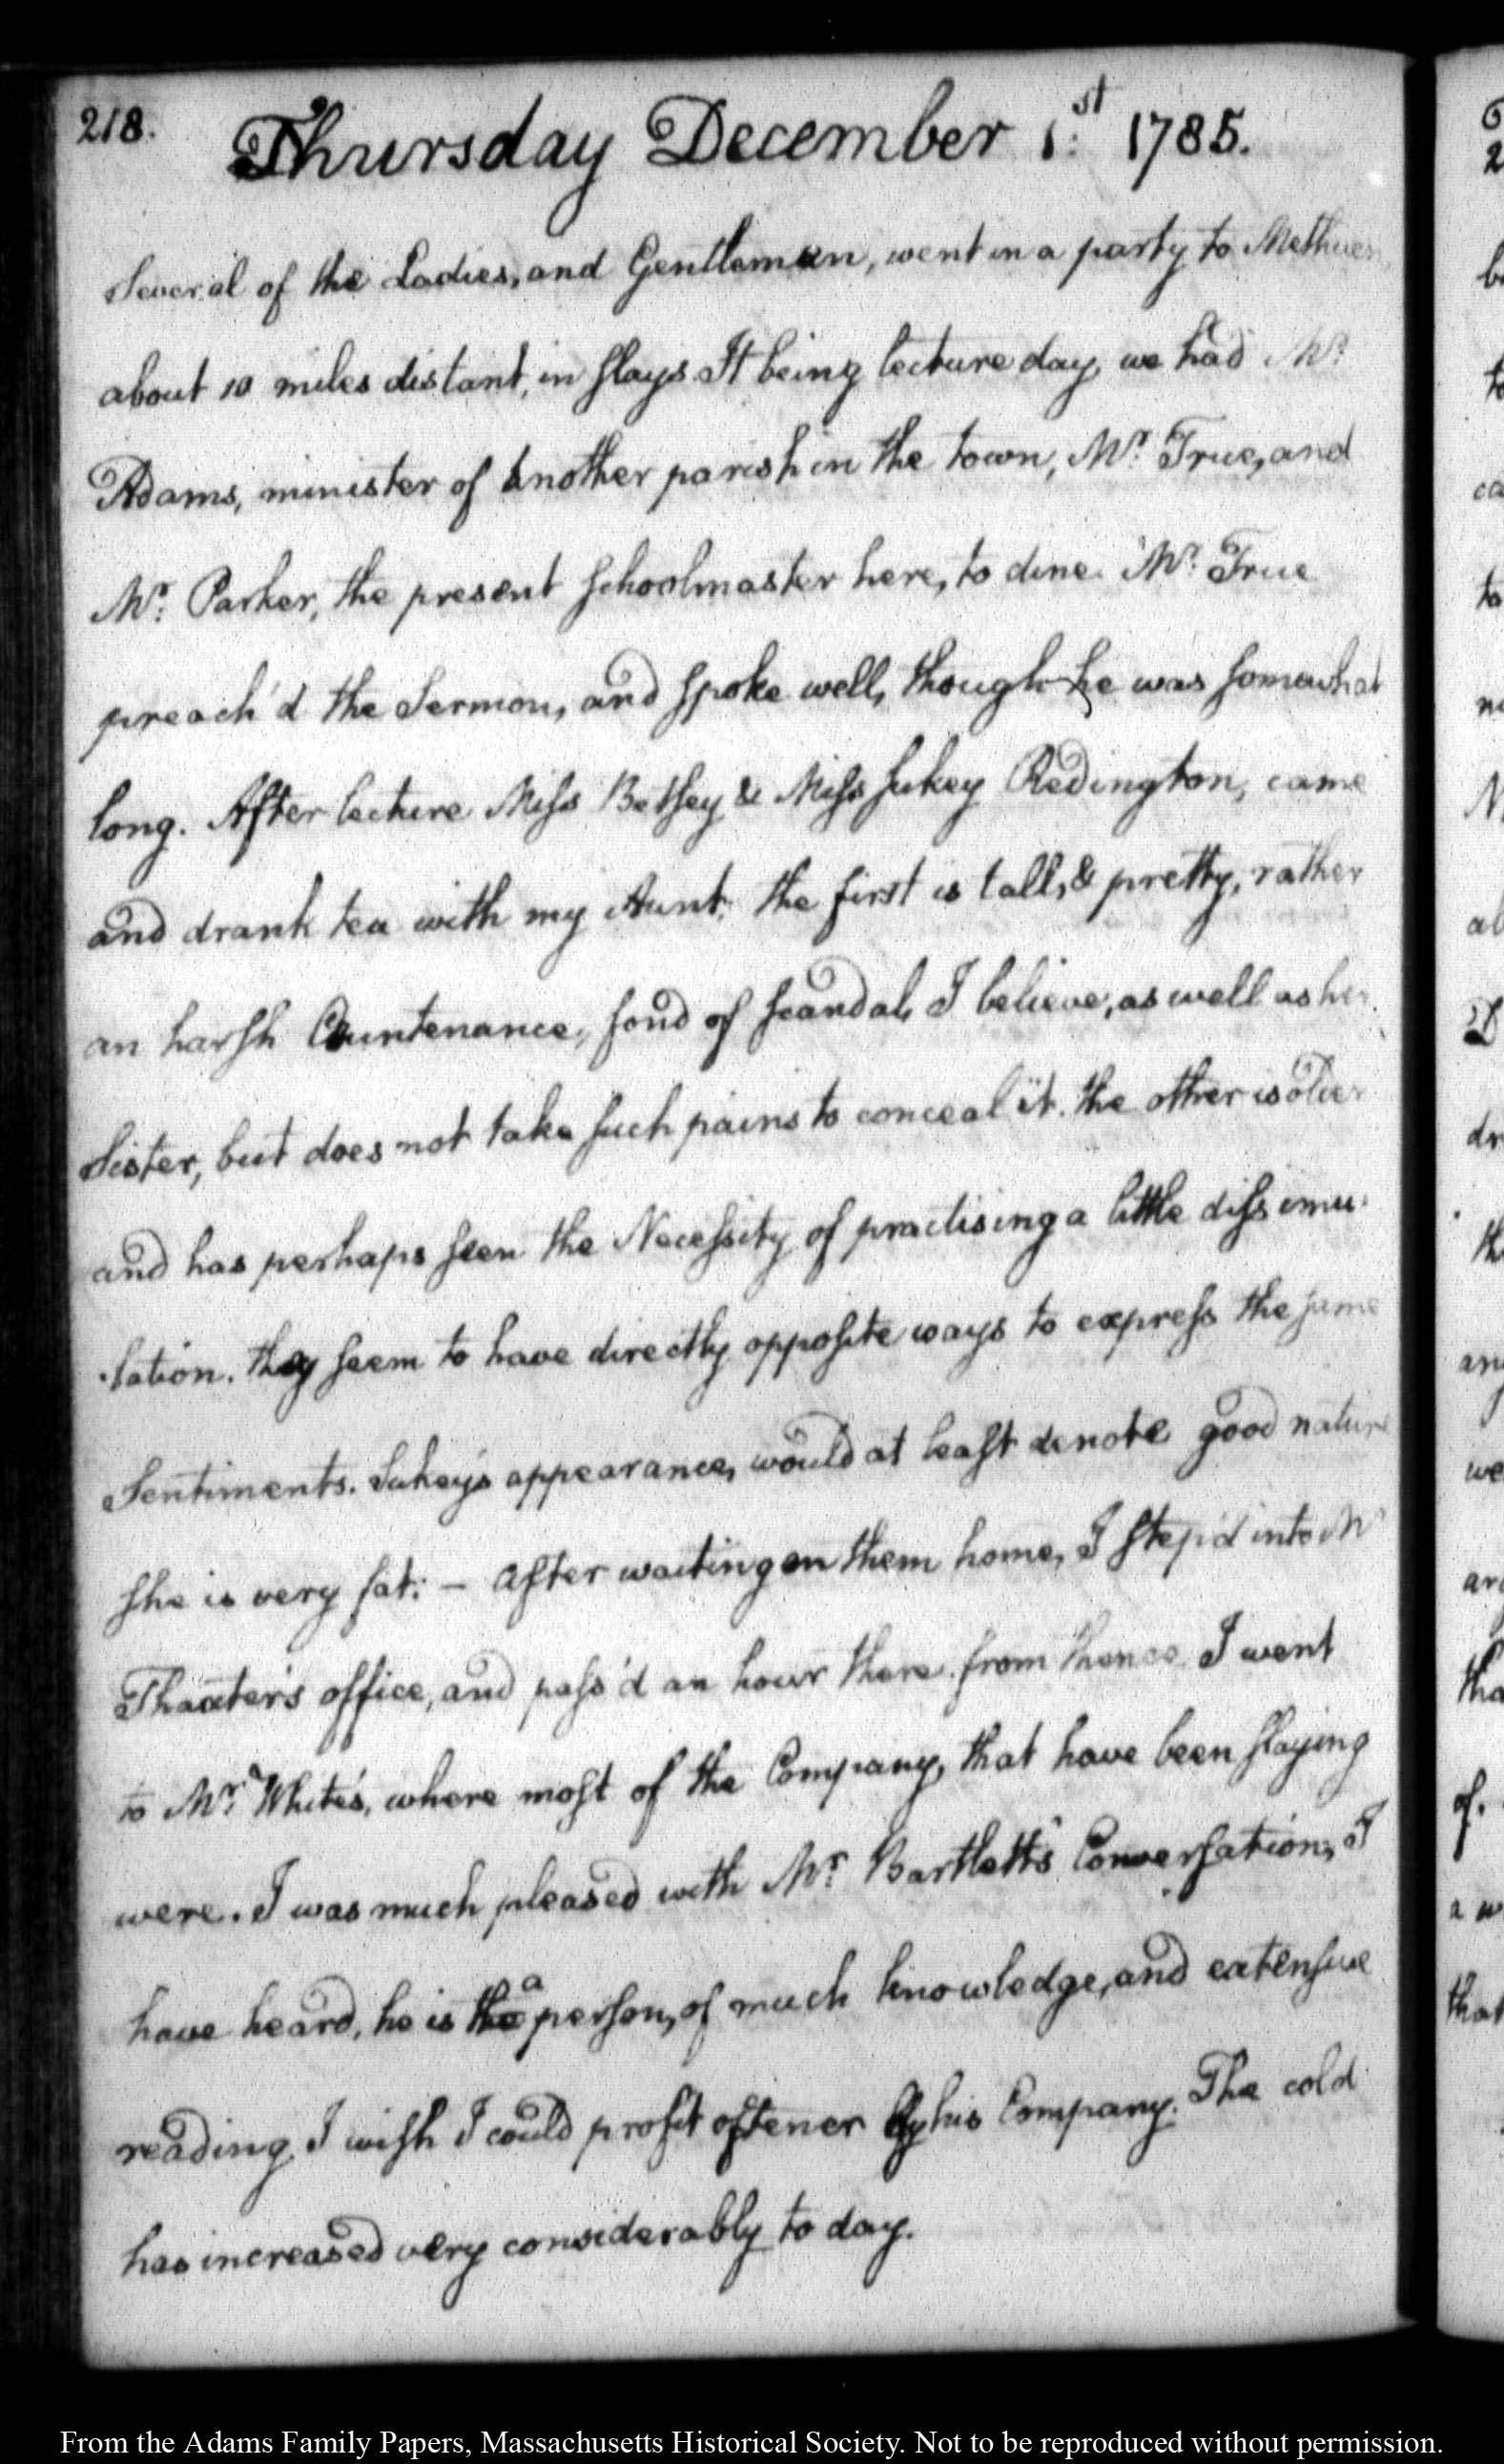 218.
Thursday December 1st: 1785.
Several of the Ladies, and Gentlemen, went in a party to Methuen,
about 10 miles distant, in slays. It being lecture day, we had Mr:
Adams, minister of another parish in the town, Mr: True, and
Mr: Parker, the present schoolmaster here, to dine. Mr: True
preach'd the Sermon, and spoke well, though he was somewhat
long. After lecture Miss Betsey & Miss Sukey Redington, came
and drank tea with my Aunt. the first is tall, & pretty, rather
an harsh Countenance, fond of scandal, I believe, as well as her
Sister, but does not take such pains to conceal it. the other is older
and has perhaps seen the Necessity of practising a little dissimu-
-lation. they seem to have directly opposite ways to express the same
Sentiments. Sukey's appearance, would at least denote good nature
she is very fat. — After waiting on them home, I step'd into Mr
Thaxter's office, and pass'd an hour there. from thence I went
to Mr: White's, where most of the Company, that have been slaying
were. I was much pleased with Mr: Bartlett's Conversation, I
have heard, he is the a person, of much knowledge, and extensive
reading. I wish I could profit oftener by his Company. The cold
has increased very considerably to day.
From the Adams Family Papers, Massachusetts Historical Society. Not to be reproduced without permission.